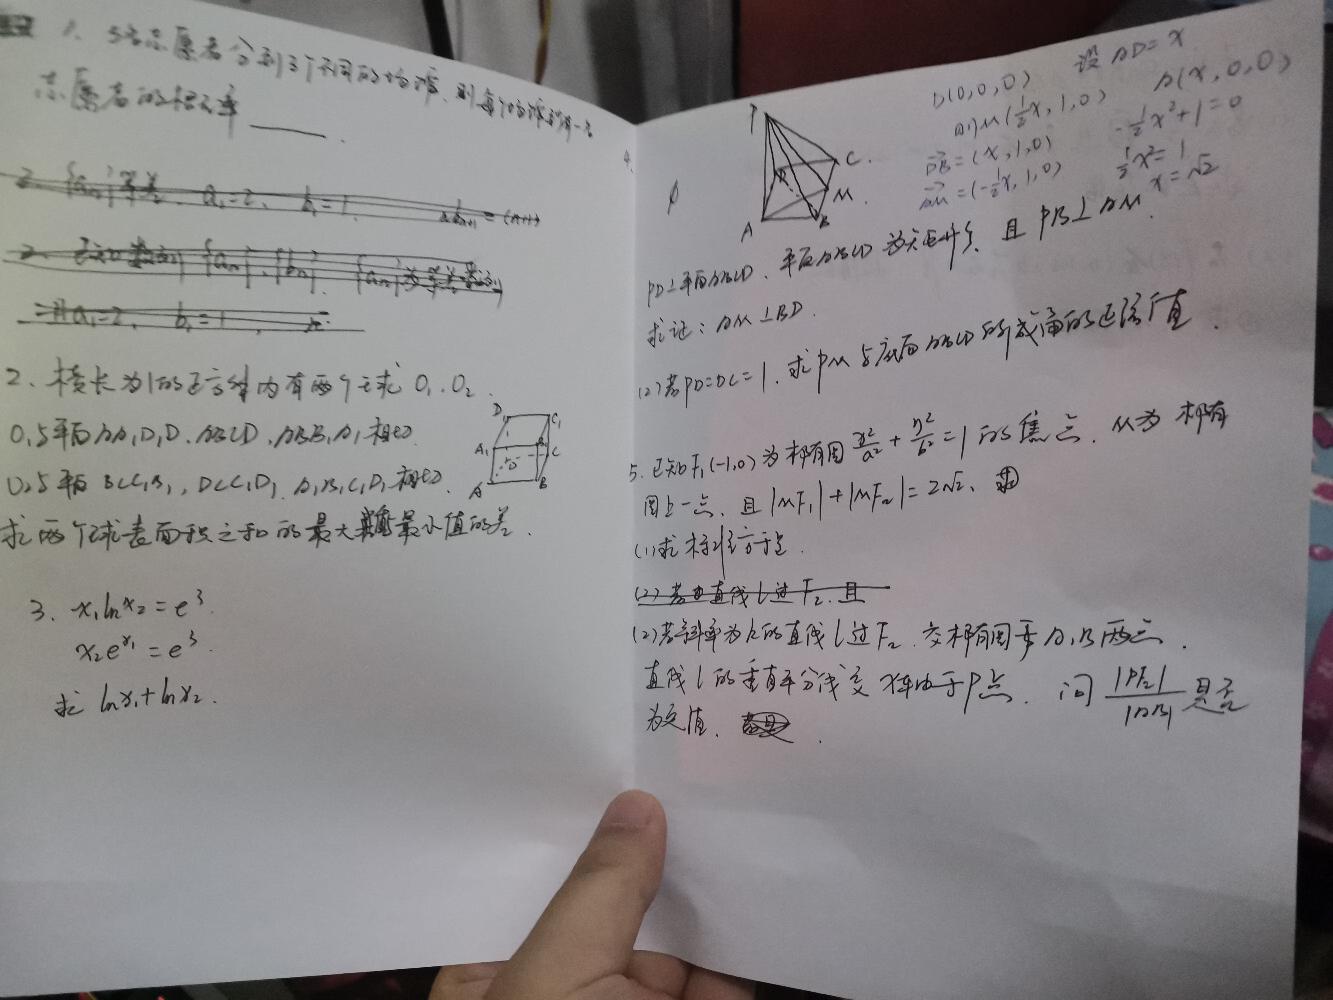 1. 5名志愿者分到3个不同的场馆,则每个场馆都有一名
志愿者的概率____.
2. 棱长为1的正方体内有两个球O₁.O₂.
O₁与平面AA₁D₁D.ABCD.ABB₁A₁相切.
O₂与面BCC₁B₁,DCC₁D₁.A₁B₁C₁D₁相切.
求两个球表面积之和的最大值最小值的差.
D₁ C₁
A₁ B₁
C
A B
3. x₁lnx₂=e³.
x₂eˣ¹=e³.
求 lnx₁+lnx₂.
D(0,0,0) 设AD=x
A(x,0,0)
则M(½x,1,0)
-½x²+1=0
DB=(x,1,0)
½x²=1
AM=(-½x,1,0)
x=√2
4.
P
D C.
M
A B
PD⊥平面ABCD.平面ABCD为矩形.且PB⊥AM.
求证:AM⊥BD.
(2)若PD=DC=1.求PM与底面ABCD所成角的正弦值.
5.已知F₁(-1,0)为椭圆x²/a²+y²/b²=1的焦点.M为椭圆
圆上一点.且|MF₁|+|MF₂|=2√2.
(1)求标准方程.
(2)若直线l过F₂.且
(2)若斜率为k的直线l过F₂.交椭圆于A,B两点.
直线l的垂直平分线交x轴于P点.问|PF₂|/|AB|是否
为定值.